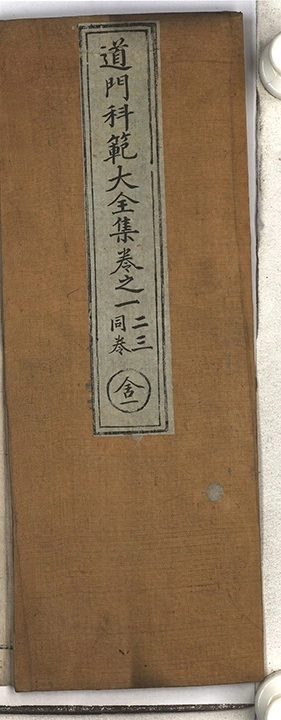 道門科範大全集卷之一
二三
同卷
舍一